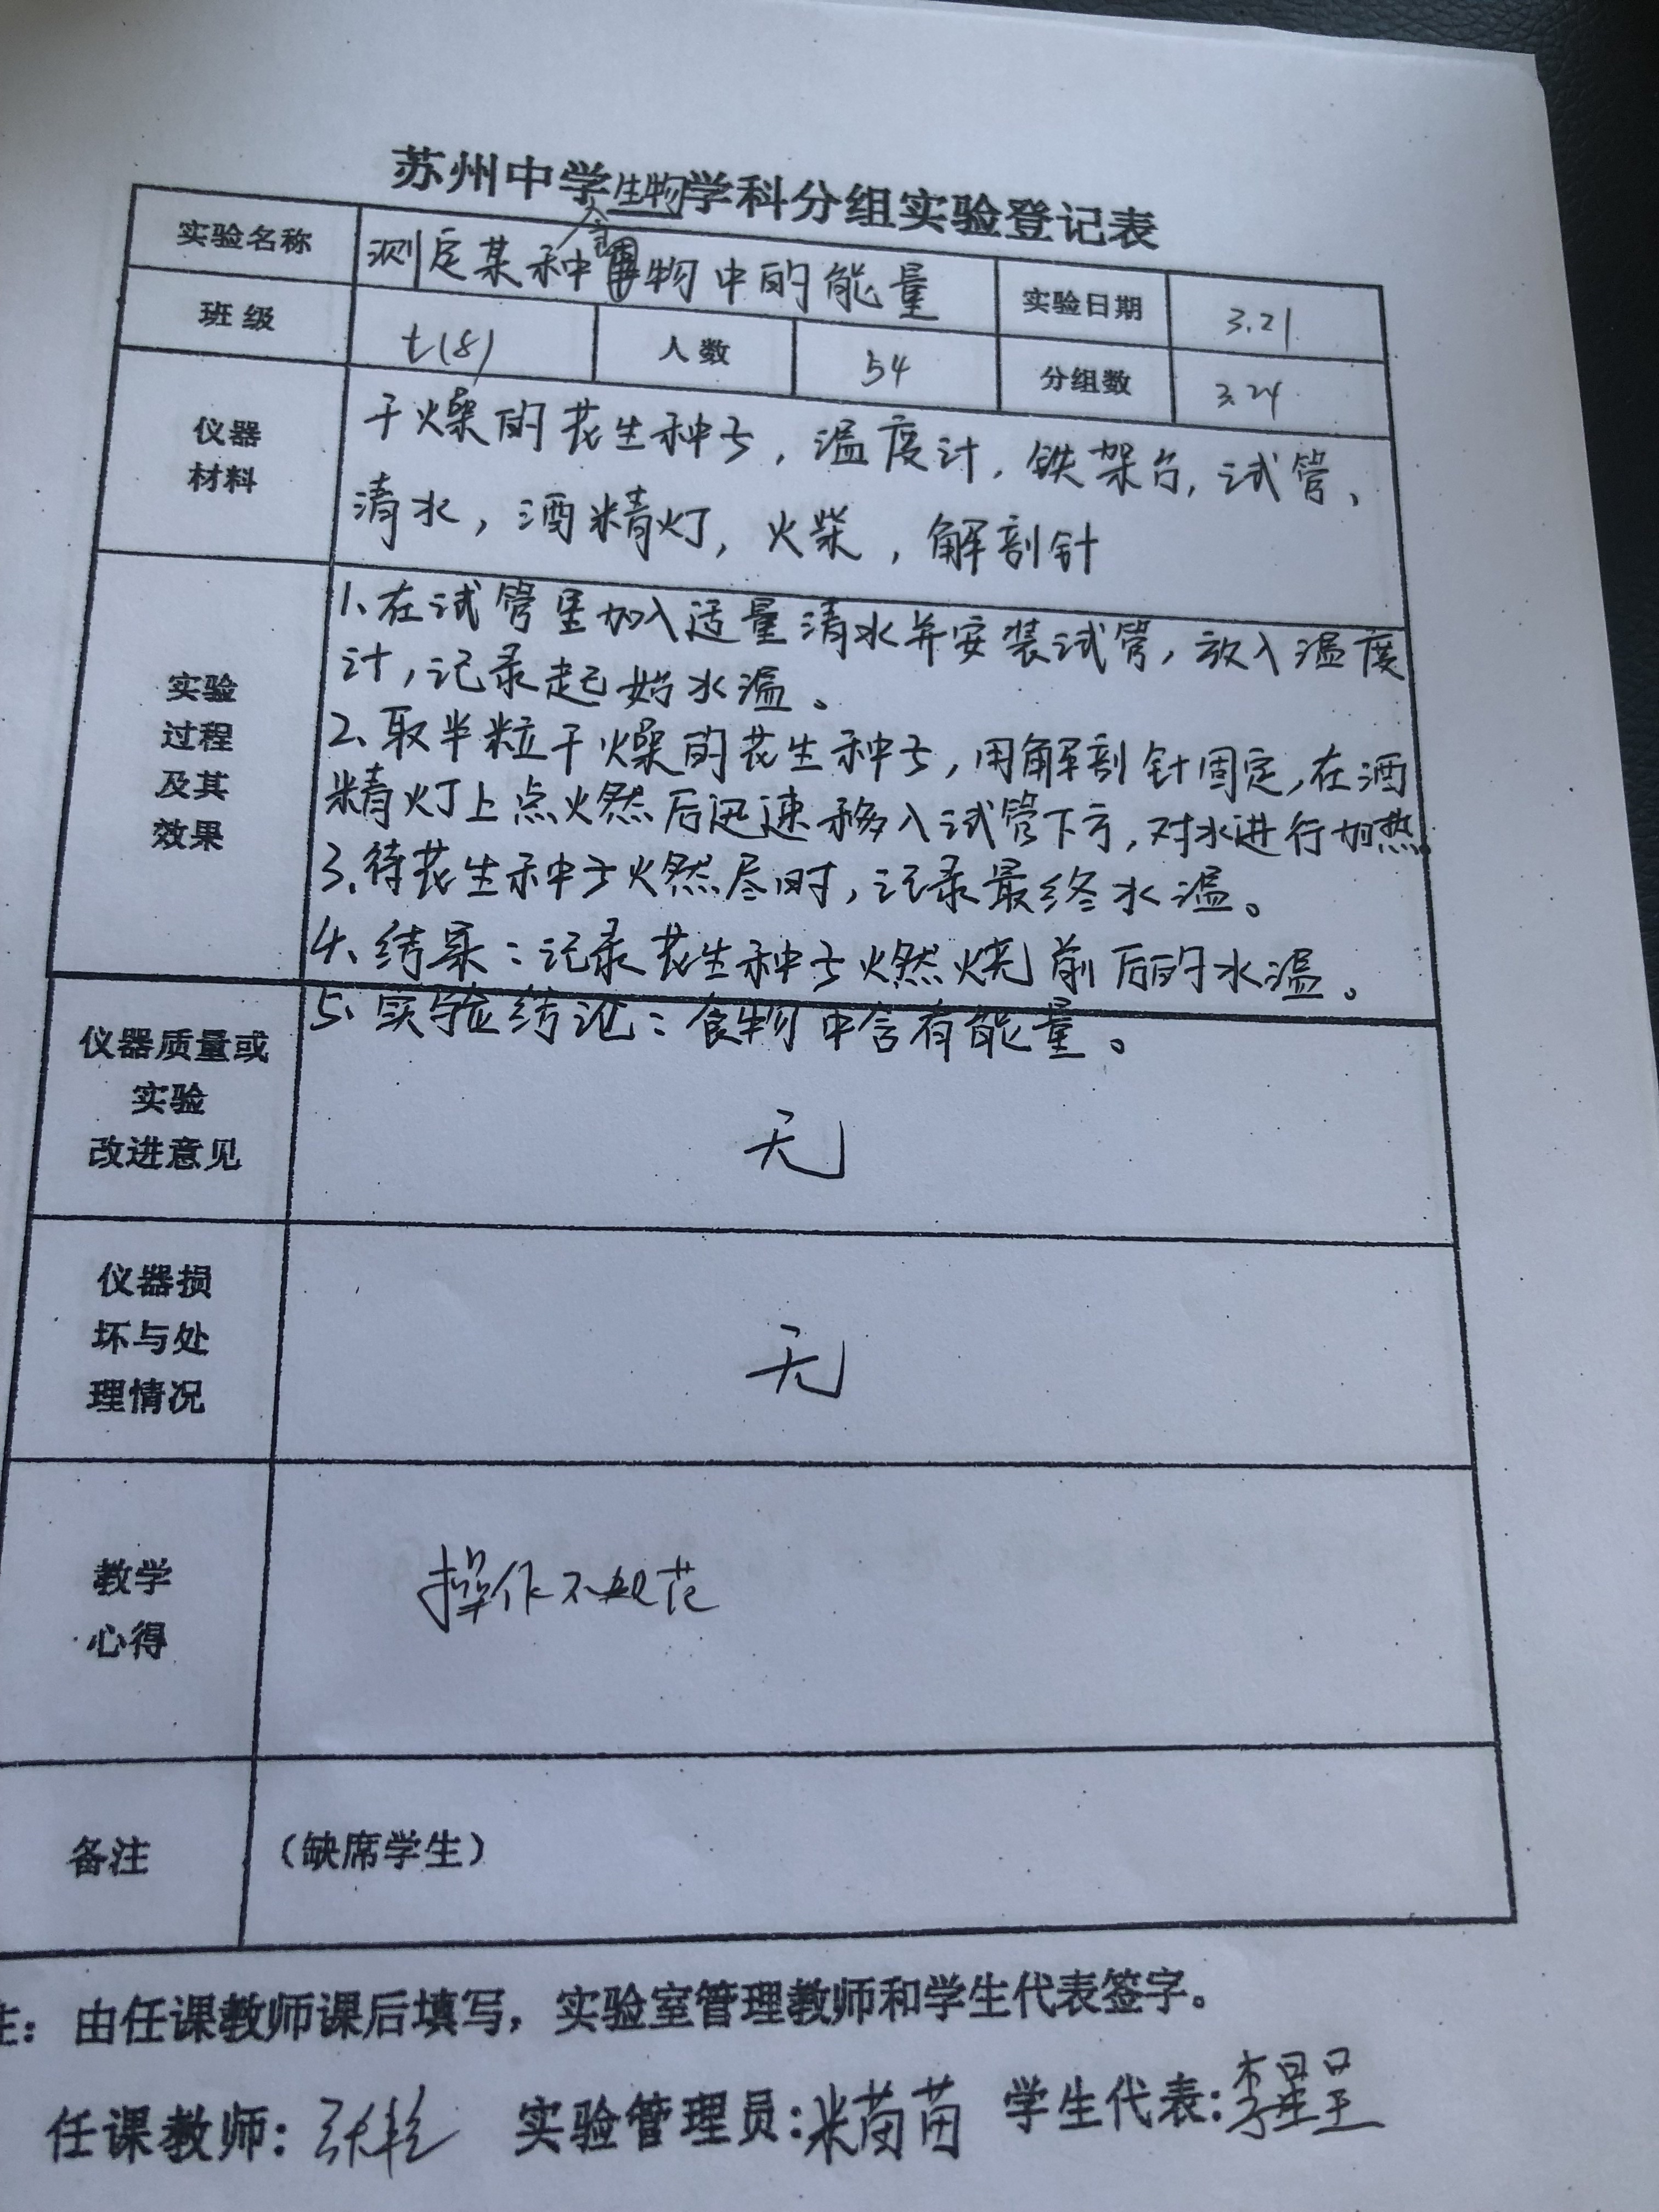 苏州中学生物学科分组实验登记表
实验名称 测定某种食物中的能量 实验日期 3.21
班级 七(8) 人数 54 分组数 3.24
仪器
材料
干燥的花生种子,温度计,铁架台,试管、
清水,酒精灯,火柴,解剖针
实验
过程
及其
效果
1、在试管里加入适量清水并安装试管,放入温度
计,记录起始水温。
2、取半粒干燥的花生种子,用解剖针固定,在酒
精灯上点火然后迅速移入试管下方,对水进行加热。
3、待花生种子火燃尽时,记录最终水温。
4、结果:记录花生种子燃烧前后的水温。
5、实验结论:食物中含有能量。
仪器质量或
实验
改进意见
无
仪器损
坏与处
理情况
无
教学
心得
操作不规范
备注 (缺席学生)
注:由任课教师课后填写,实验室管理教师和学生代表签字。
任课教师: 实验管理员:米苗苗 学生代表:李星呈